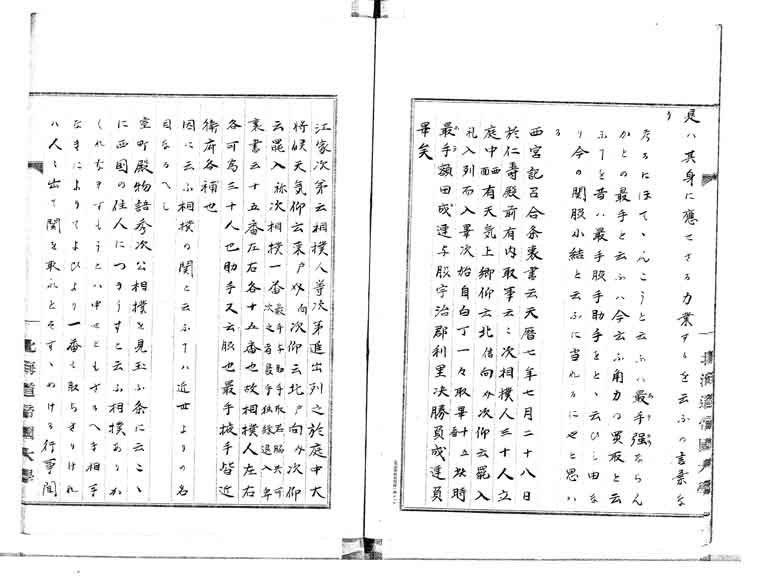 是ハ其身に應せさる力業するを云ふの言葉な
り
考るにほてゝんこうと云ふハ最手強ならん
かとの最手と云ふハ今云ふ角力の関取と云
ふてを昔ハ最手股手助手をとゝ云ひし由な
り今の関股小結と云ふに当れるにやと思ハ
る
西宮記召合条裏書云天暦七年七月二十八日
於仁壽殿前有内取事云〻次相撲人三十人立
庭中西面有天気上郷仰云北向次仰云罷入
礼入列而入畢次始自白丁一々取畢十五次時
最手額田成連与股宇治郡利里決勝負成連負
畢矣
江家次第云相撲人等次第進出列立於庭中大
将候天気仰云東向次仰云北向次仰
云罷入称次相撲一番
裏書云十五番左右各十五番也故相撲人左右
各可為三十人也助手又云股也最手掖手皆近
衛府各補也
因に云ふ相撲の関と云ふてハ近世よりの名
目ならへし
室町殿物語秀次公相撲を見玉ふ条に云こゝ
に西国の住人につきうすと云ふ相撲ありか
くれなきすもうとハ申せともさるへき相手
なきによりてよひより一番も取らさりけれ
ハ人々出て関を取れとそすゝめける行事関
北海道帝國大學
北海道帝國大學